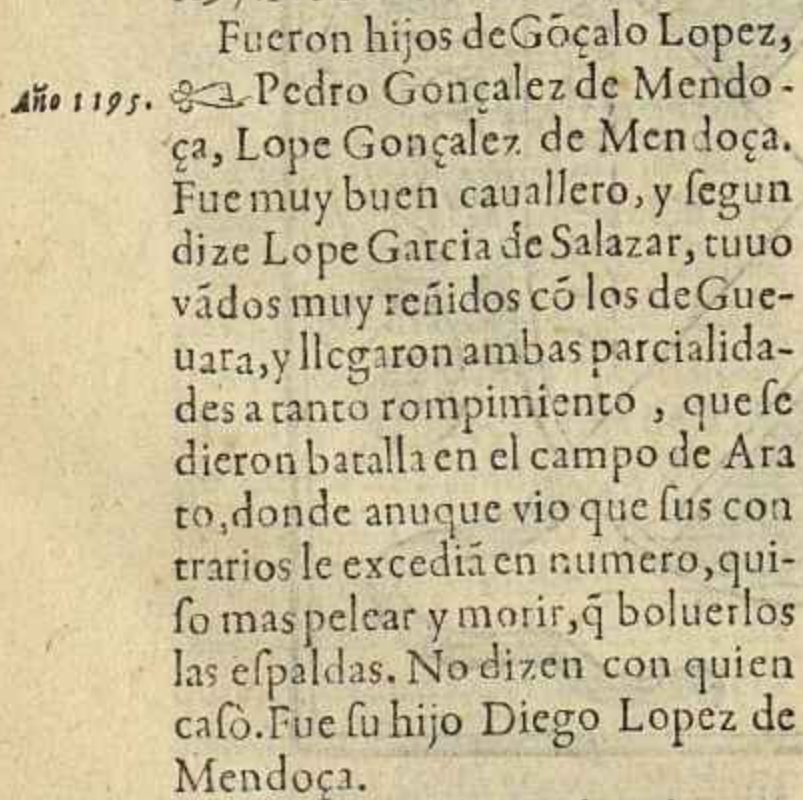 Fueron hijos de Gõçalo Lopez,
Año 1195. Pedro Gonçalez de Mendo-
ça, Lope Gonçalez de Mendoça.
Fue muy buen cauallero, y ſegun
dize Lope Garcia de Salazar, tuuo
vãdos muy reñidos cõ los de Gue-
uara, y llegaron ambas parcialida-
des a tanto rompimiento , que ſe
dieron batalla en el campo de Ara
to, donde anuque vio que ſus con
trarios le excediã en numero, qui-
ſo mas pelear y morir, q̃ boluerlos
las eſpaldas. No dizen con quien
caſò. Fue ſu hijo Diego Lopez de
Mendoça.